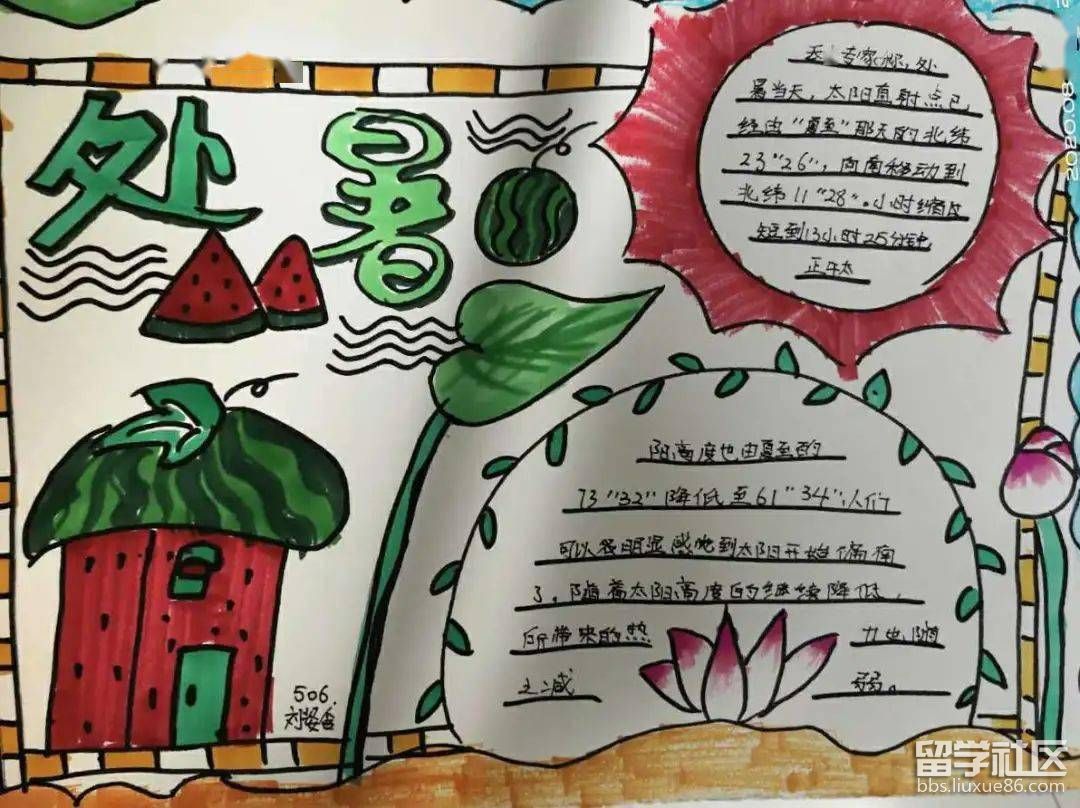 处暑
专家称，处
暑当天，太阳直射点已
经由“夏至”那天的北纬
23"26"，向南移动到
北纬11"28"。小时缩
短到13小时25分钟
正午太
阳高度也由夏至的
73"32"降低至61"34"；人们
可以很明显感觉到太阳开始偏南
了。随着太阳高度的继续降低，
所带来的热 力也随
之减 弱。
506.
刘
2020.08
留学社区
bbs.liuxue86.com